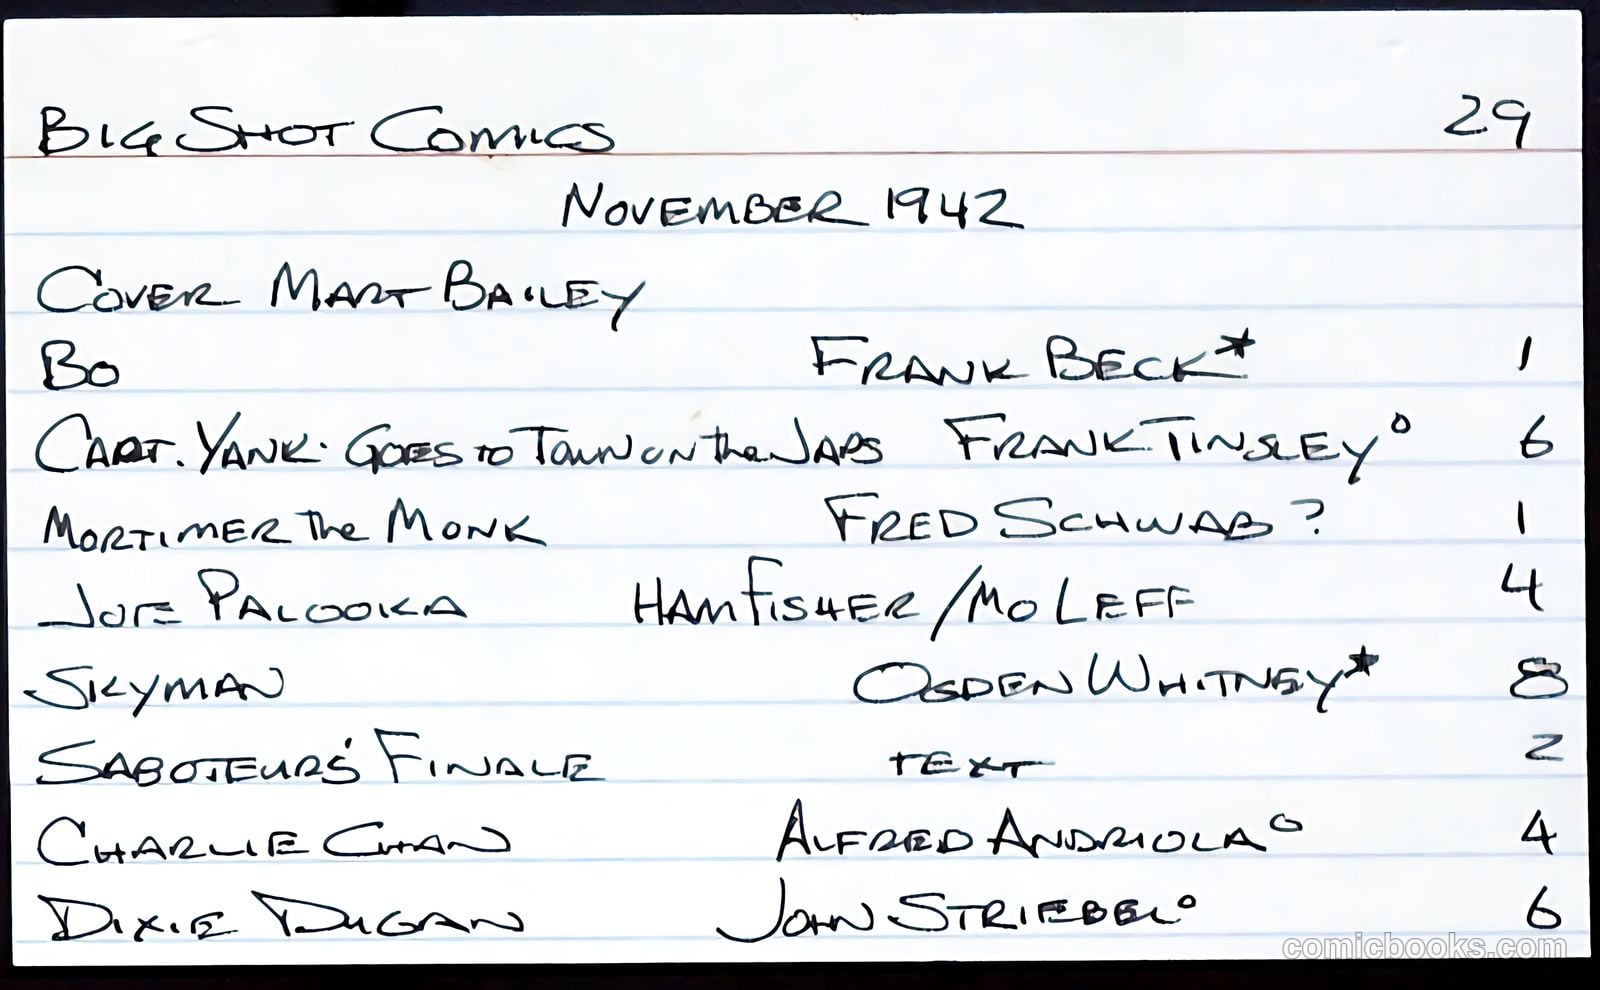 BIG SHOT COMICS 29
NOVEMBER 1942
COVER MART BAILEY
BO FRANK BECK* 1
CAPT. YANK· GOES TO TOWN ON the JAPS FRANK TINSLEY° 6
MORTIMER the MONK FRED SCHWAB ? 1
JOE PALOOKA HAM FISHER/MO LEFF 4
SKYMAN OGDEN WHITNEY* 8
SABOTEURS' FINALE TEXT 2
CHARLIE CHAN ALFRED ANDRIOLA° 4
DIXIE DUGAN JOHN STRIEBEL° 6
comicbooks.com